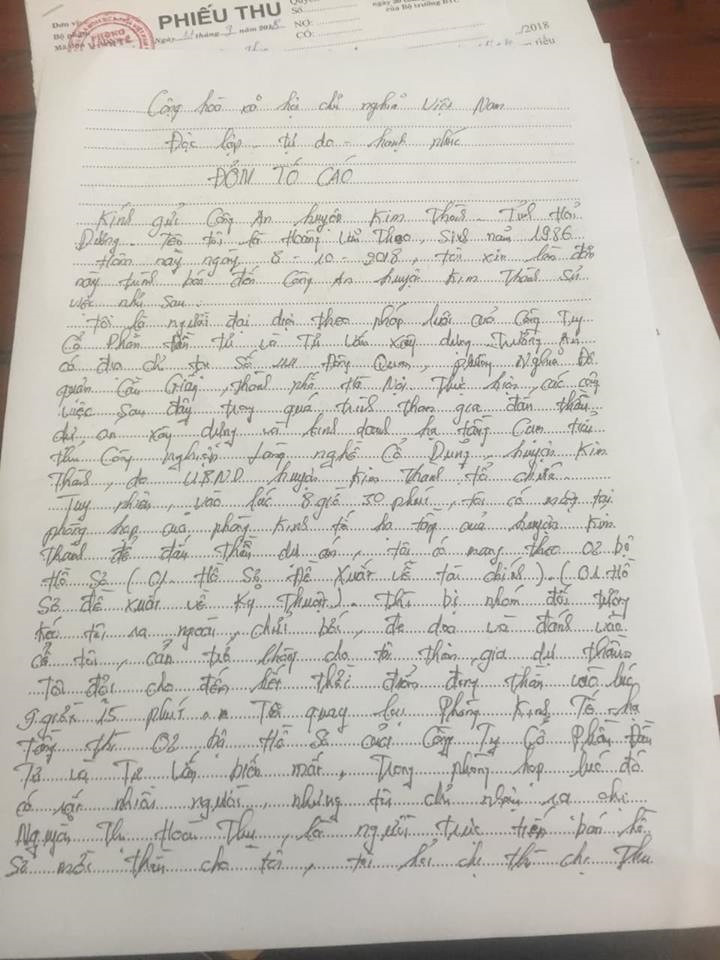 Đơn vị
Bộ phận
PHIẾU THU
Ngày 11 tháng 9 năm 2018
Số
NỢ:
CÓ:
của Bộ trưởng BTC
/2018
Cộng hòa xã hội chủ nghĩa Việt Nam
Độc lập - tự do - hạnh phúc
ĐƠN TỐ CÁO
Kính gửi Công An huyện Kim Thành - Tỉnh Hải
Dương. Tên tôi là Hoàng Thạo, Sinh năm 1986
Hôm nay ngày 8 - 10 - 2018, tôi xin làm đơn
này trình báo đến Công An huyện Kim Thành Sự
việc như sau:
tôi là người đại diện theo pháp luật của Công Ty
Cổ Phần Đầu tư và Tư vấn xây dựng Trường An
có địa chỉ tại Số Đông Quan, phường Nghĩa Đô
quận Cầu Giấy, thành phố Hà Nội. Thực hiện các công
việc sau đây trong quá trình tham gia đấu thầu
dự án xây dựng và kinh doanh hạ tầng Cụm tiểu
thủ Công nghiệp làng nghề Cổ Dũng, huyện Kim
Thành, do UBND huyện Kim Thành tổ chức.
Tuy nhiên, vào lúc 8 giờ 30 phút, tôi có mặt tại
phòng họp của phòng Kinh tế hạ tầng của huyện Kim
Thành để đấu thầu dự án, tôi có mang theo 02 bộ
Hồ Sơ (01 Hồ Sơ Đề Xuất về tài chính) (01 Hồ
Sơ đề xuất về Kỹ Thuật). Thì bị nhóm đối tượng
kéo tôi ra ngoài, chửi bới, đe dọa và đánh vào
cổ tôi, cản trở không cho tôi tham gia dự thầu.
Tôi đợi cho đến hết thời điểm đóng thầu vào lúc
9 giờ 15 phút Tôi quay lại Phòng Kinh Tế hạ
tầng thì 02 bộ Hồ Sơ của Công Ty Cổ Phần Đầu
Tư và Tư Vấn biến mất, Trong phòng họp lúc đó
có rất nhiều người, nhưng tôi chỉ nhận ra chị
Nguyễn Thị Hoài Thu, là người trực tiếp bán hồ
Sơ mời thầu cho tôi, tôi hỏi chị thì chị Thu